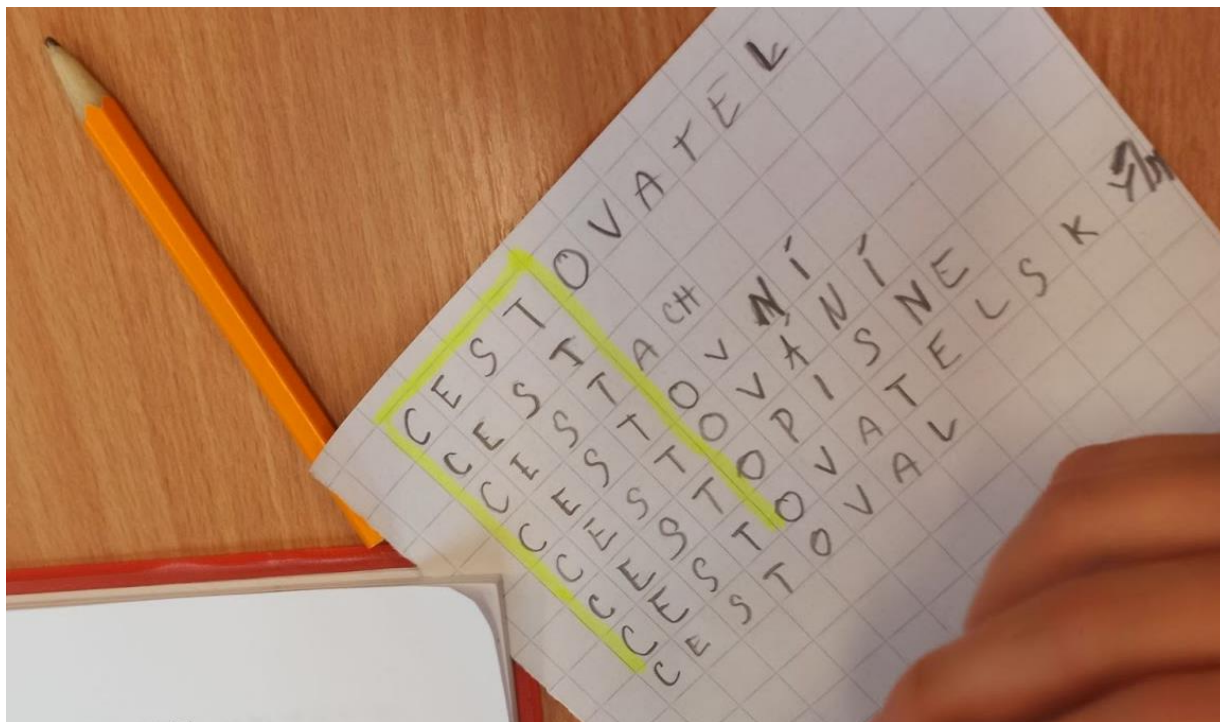 CESTOVATEL
CEST
CESTACH
CESTOVNÍ
CESTOVÁNÍ
CESTOPISNE
CESTOVATELSKÝ
CESTOVAL